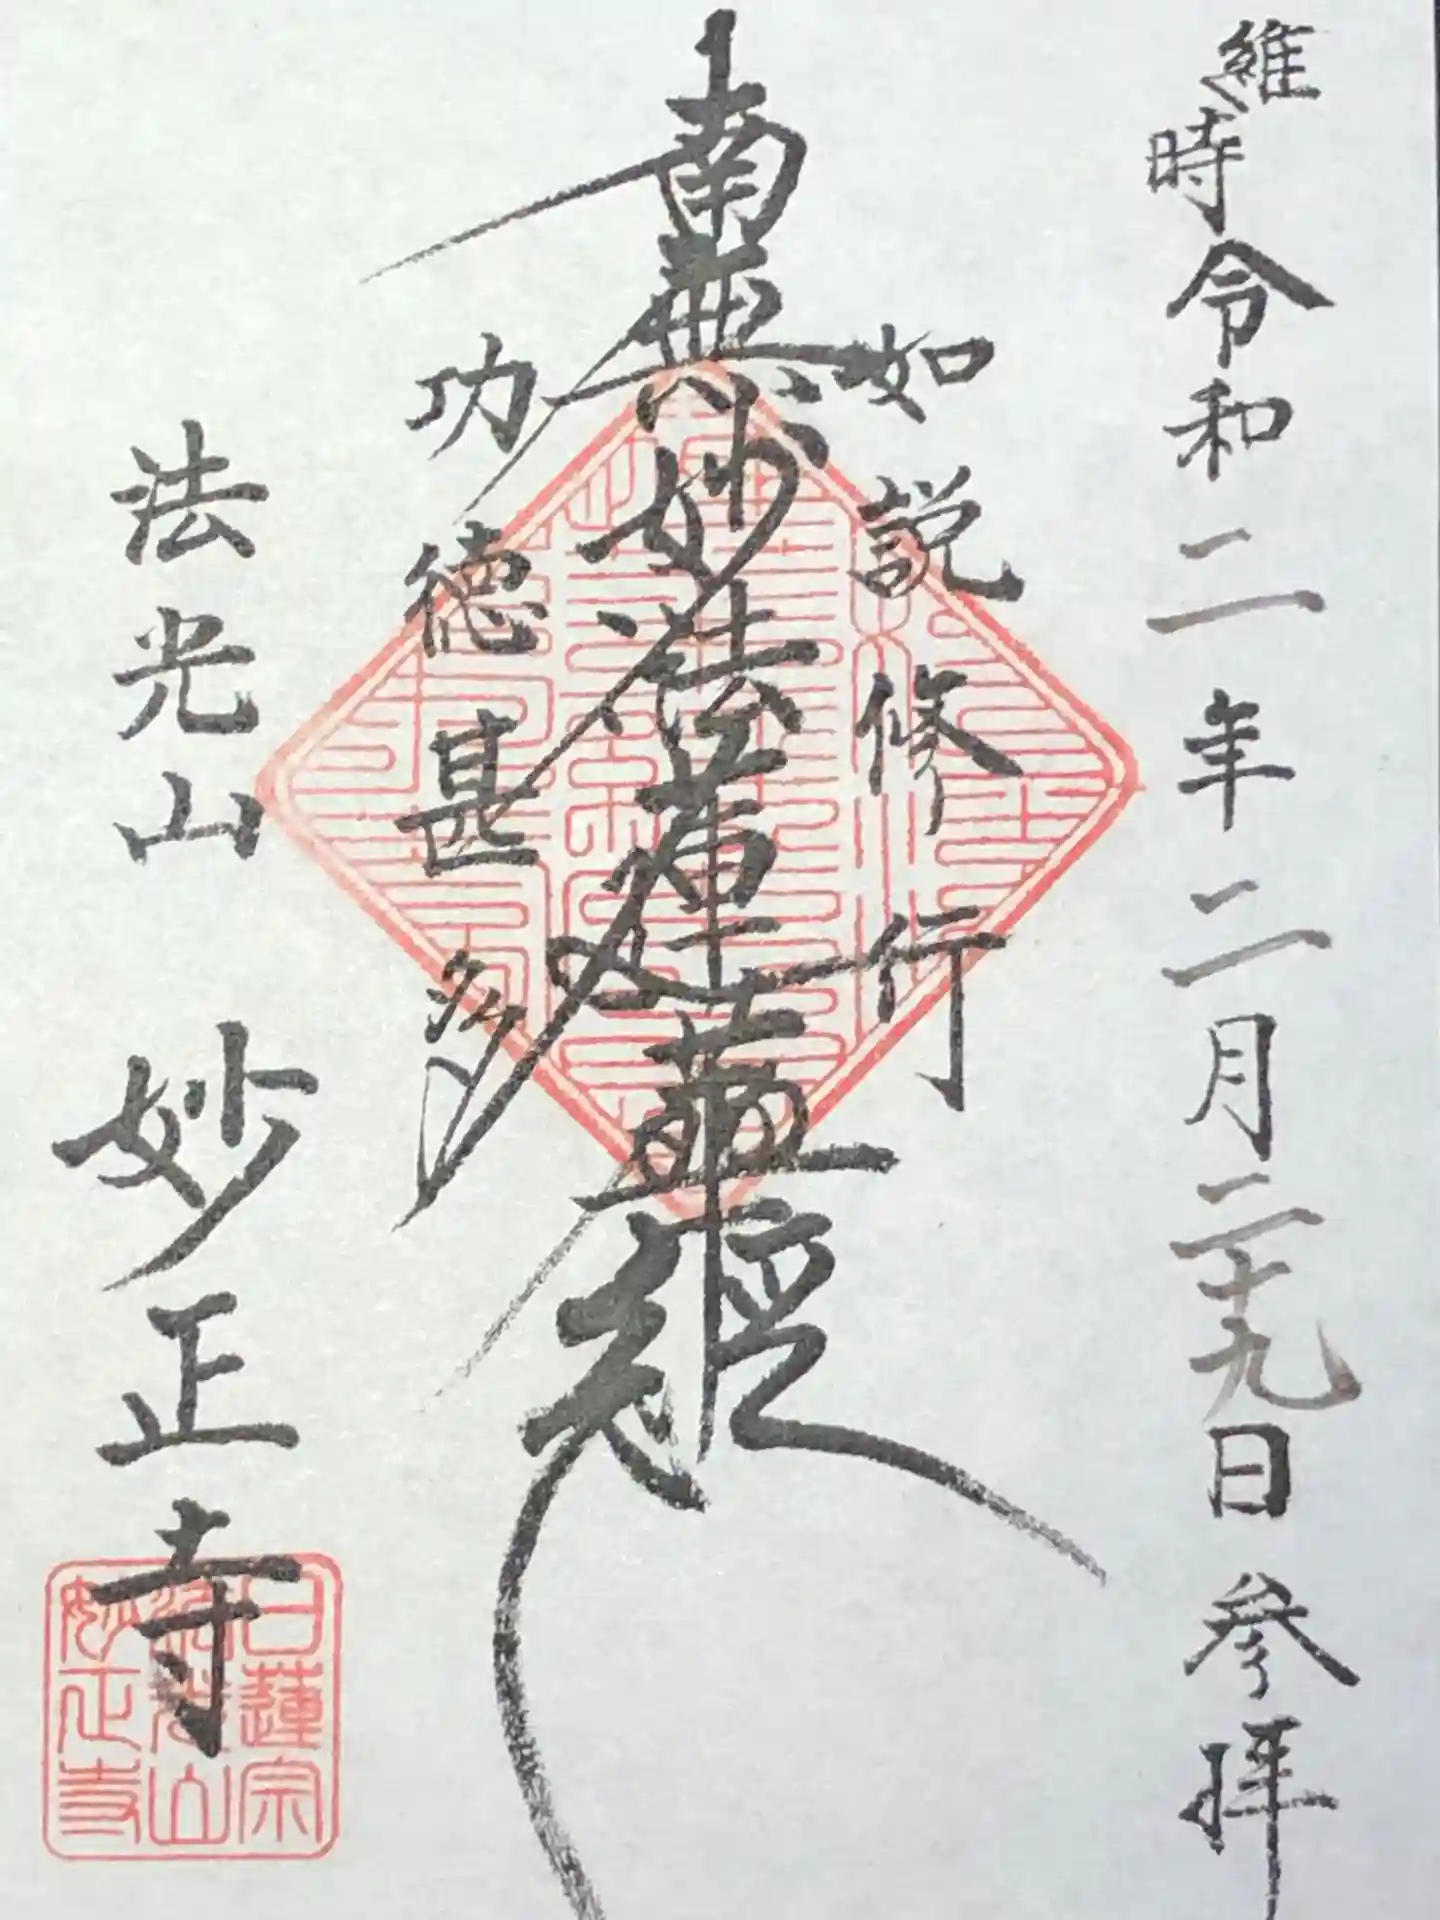 維時令和二年二月二十九日参拝
如説修行
南無妙法蓮華経
功徳甚多
法光山 妙正寺
日蓮宗
法光山
妙正寺